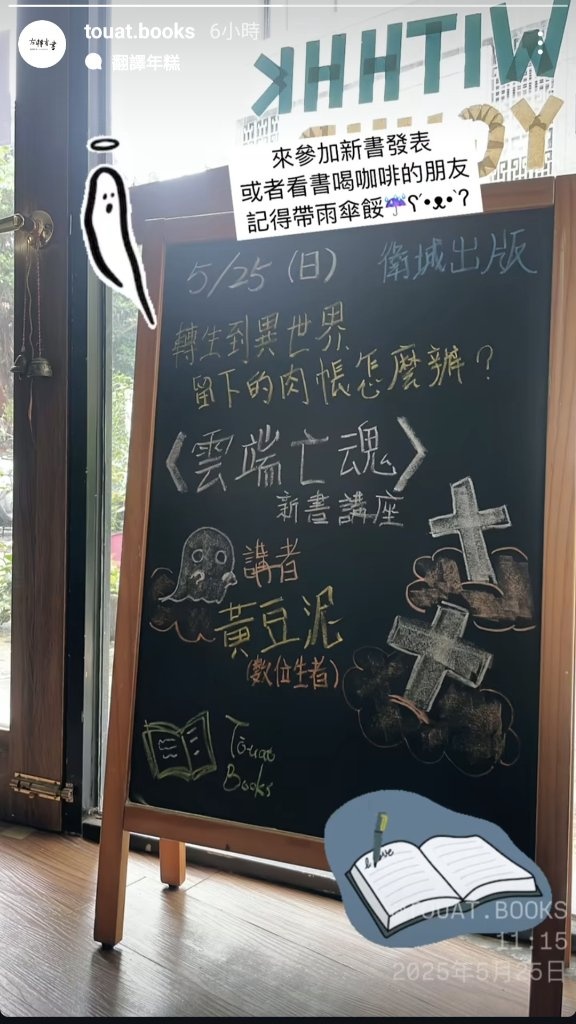 touat.books 6小時
翻譯年糕
WITHHK
來參加新書發表
或者看書喝咖啡的朋友
記得帶雨傘餒☔ʕ´•ᴥ•`ʔ
5/25 (日) 衛城出版
轉生到異世界
留下的肉帳怎麼辦?
《雲端亡魂》
新書講座
講者
黃豆泥
(數位生者)
Tōuat
Books
love
TOUAT.BOOKS
11:15
2025年5月25日